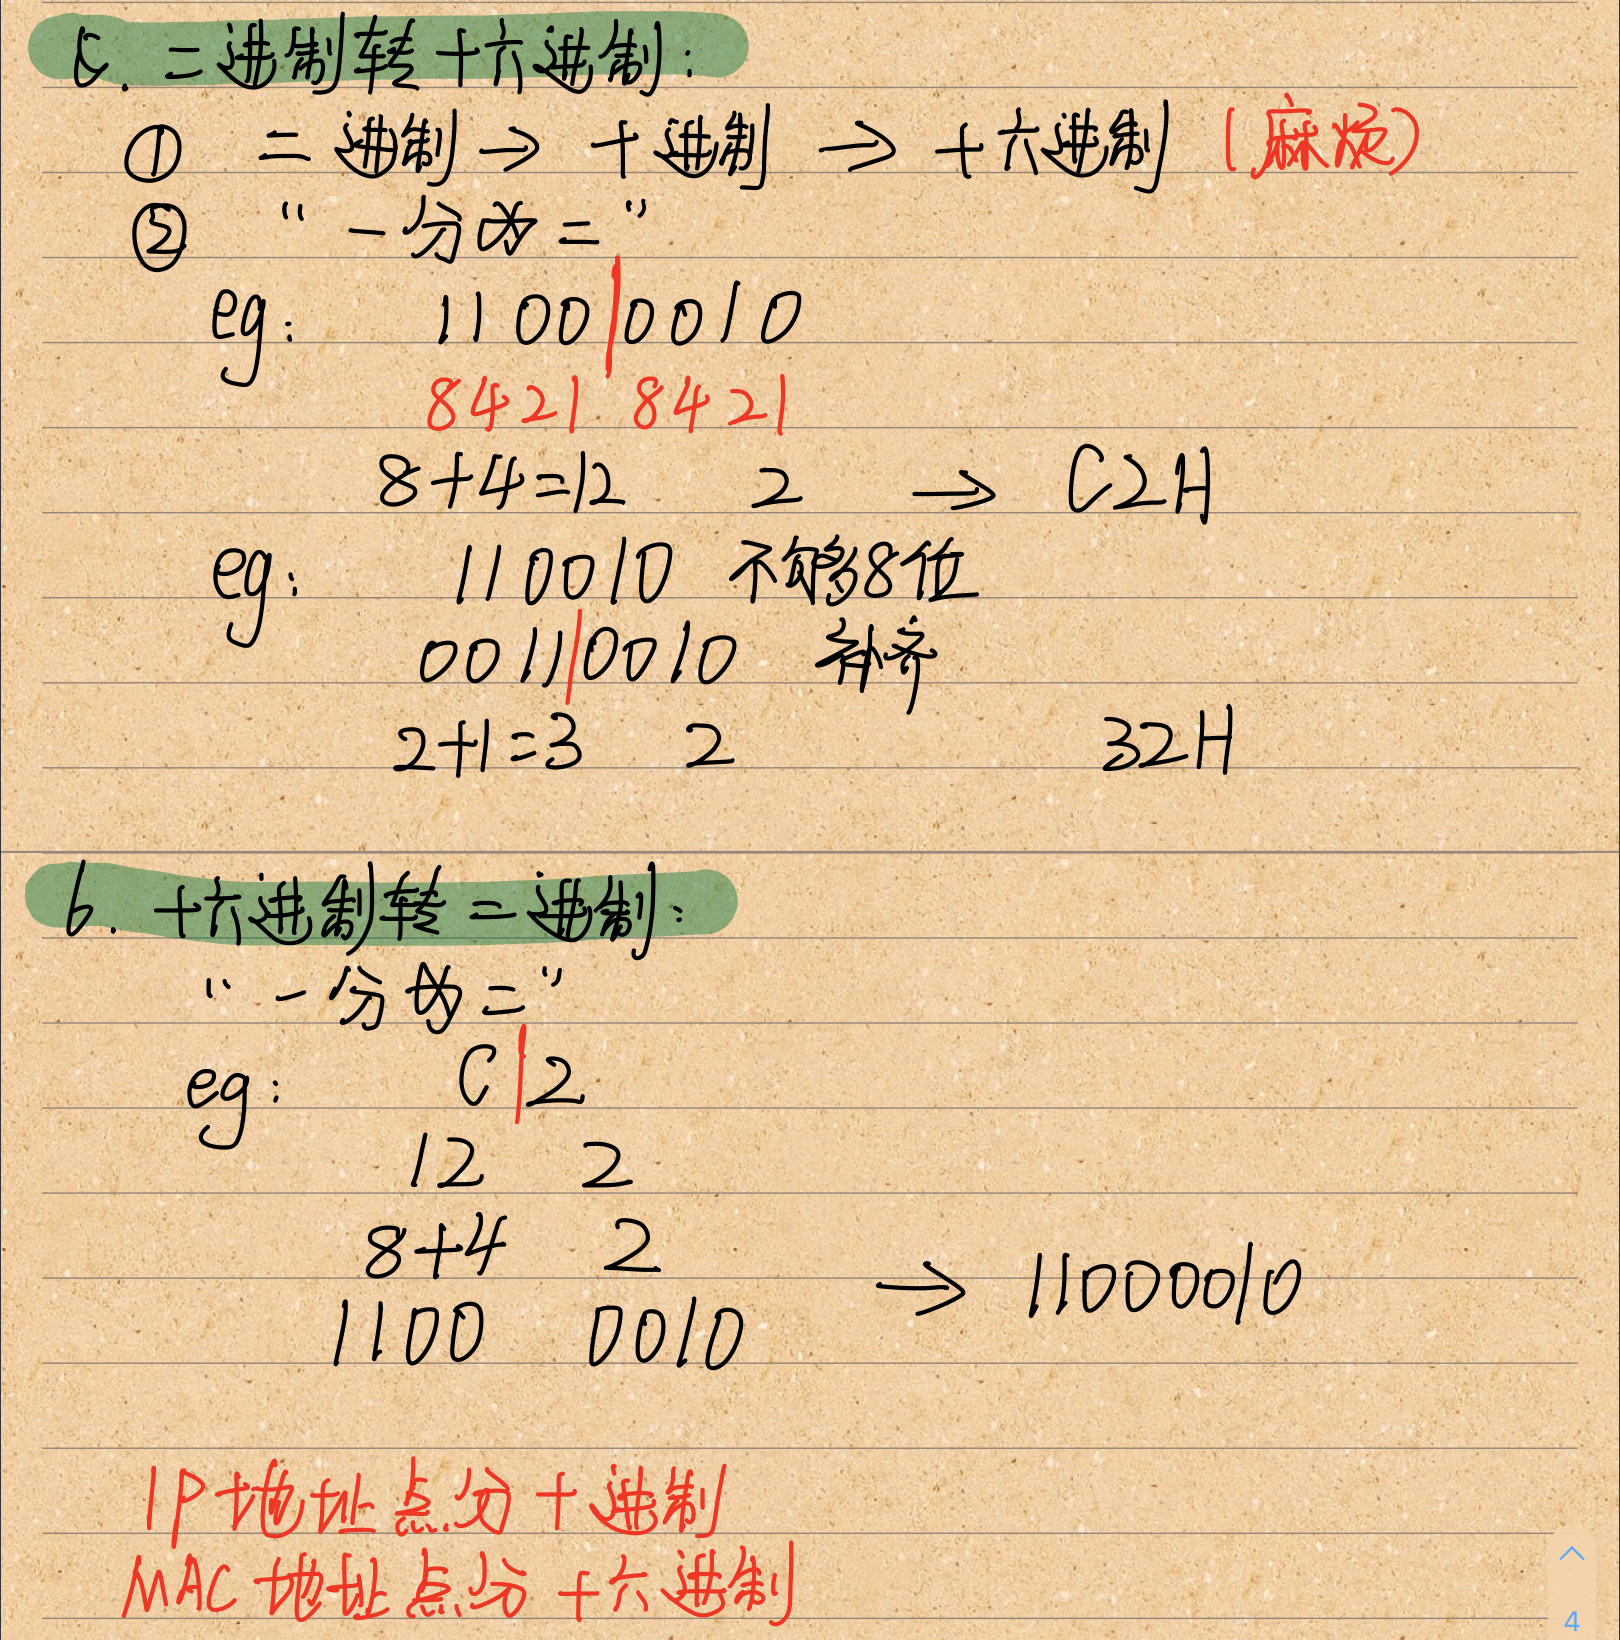 5. 二进制转十六进制:
① 二进制→十进制→十六进制(麻烦)
② “一分为二”
eg: 1100|0010
8421 8421
8+4=12 2 → C2H
eg: 110010 不够8位
0011|0010 补齐
2+1=3 2 32H
6. 十六进制转二进制:
“一分为二”
eg: C|2
12 2
8+4 2
1100 0010 → 11000010
IP地址点分十进制
MAC地址点分十六进制
4